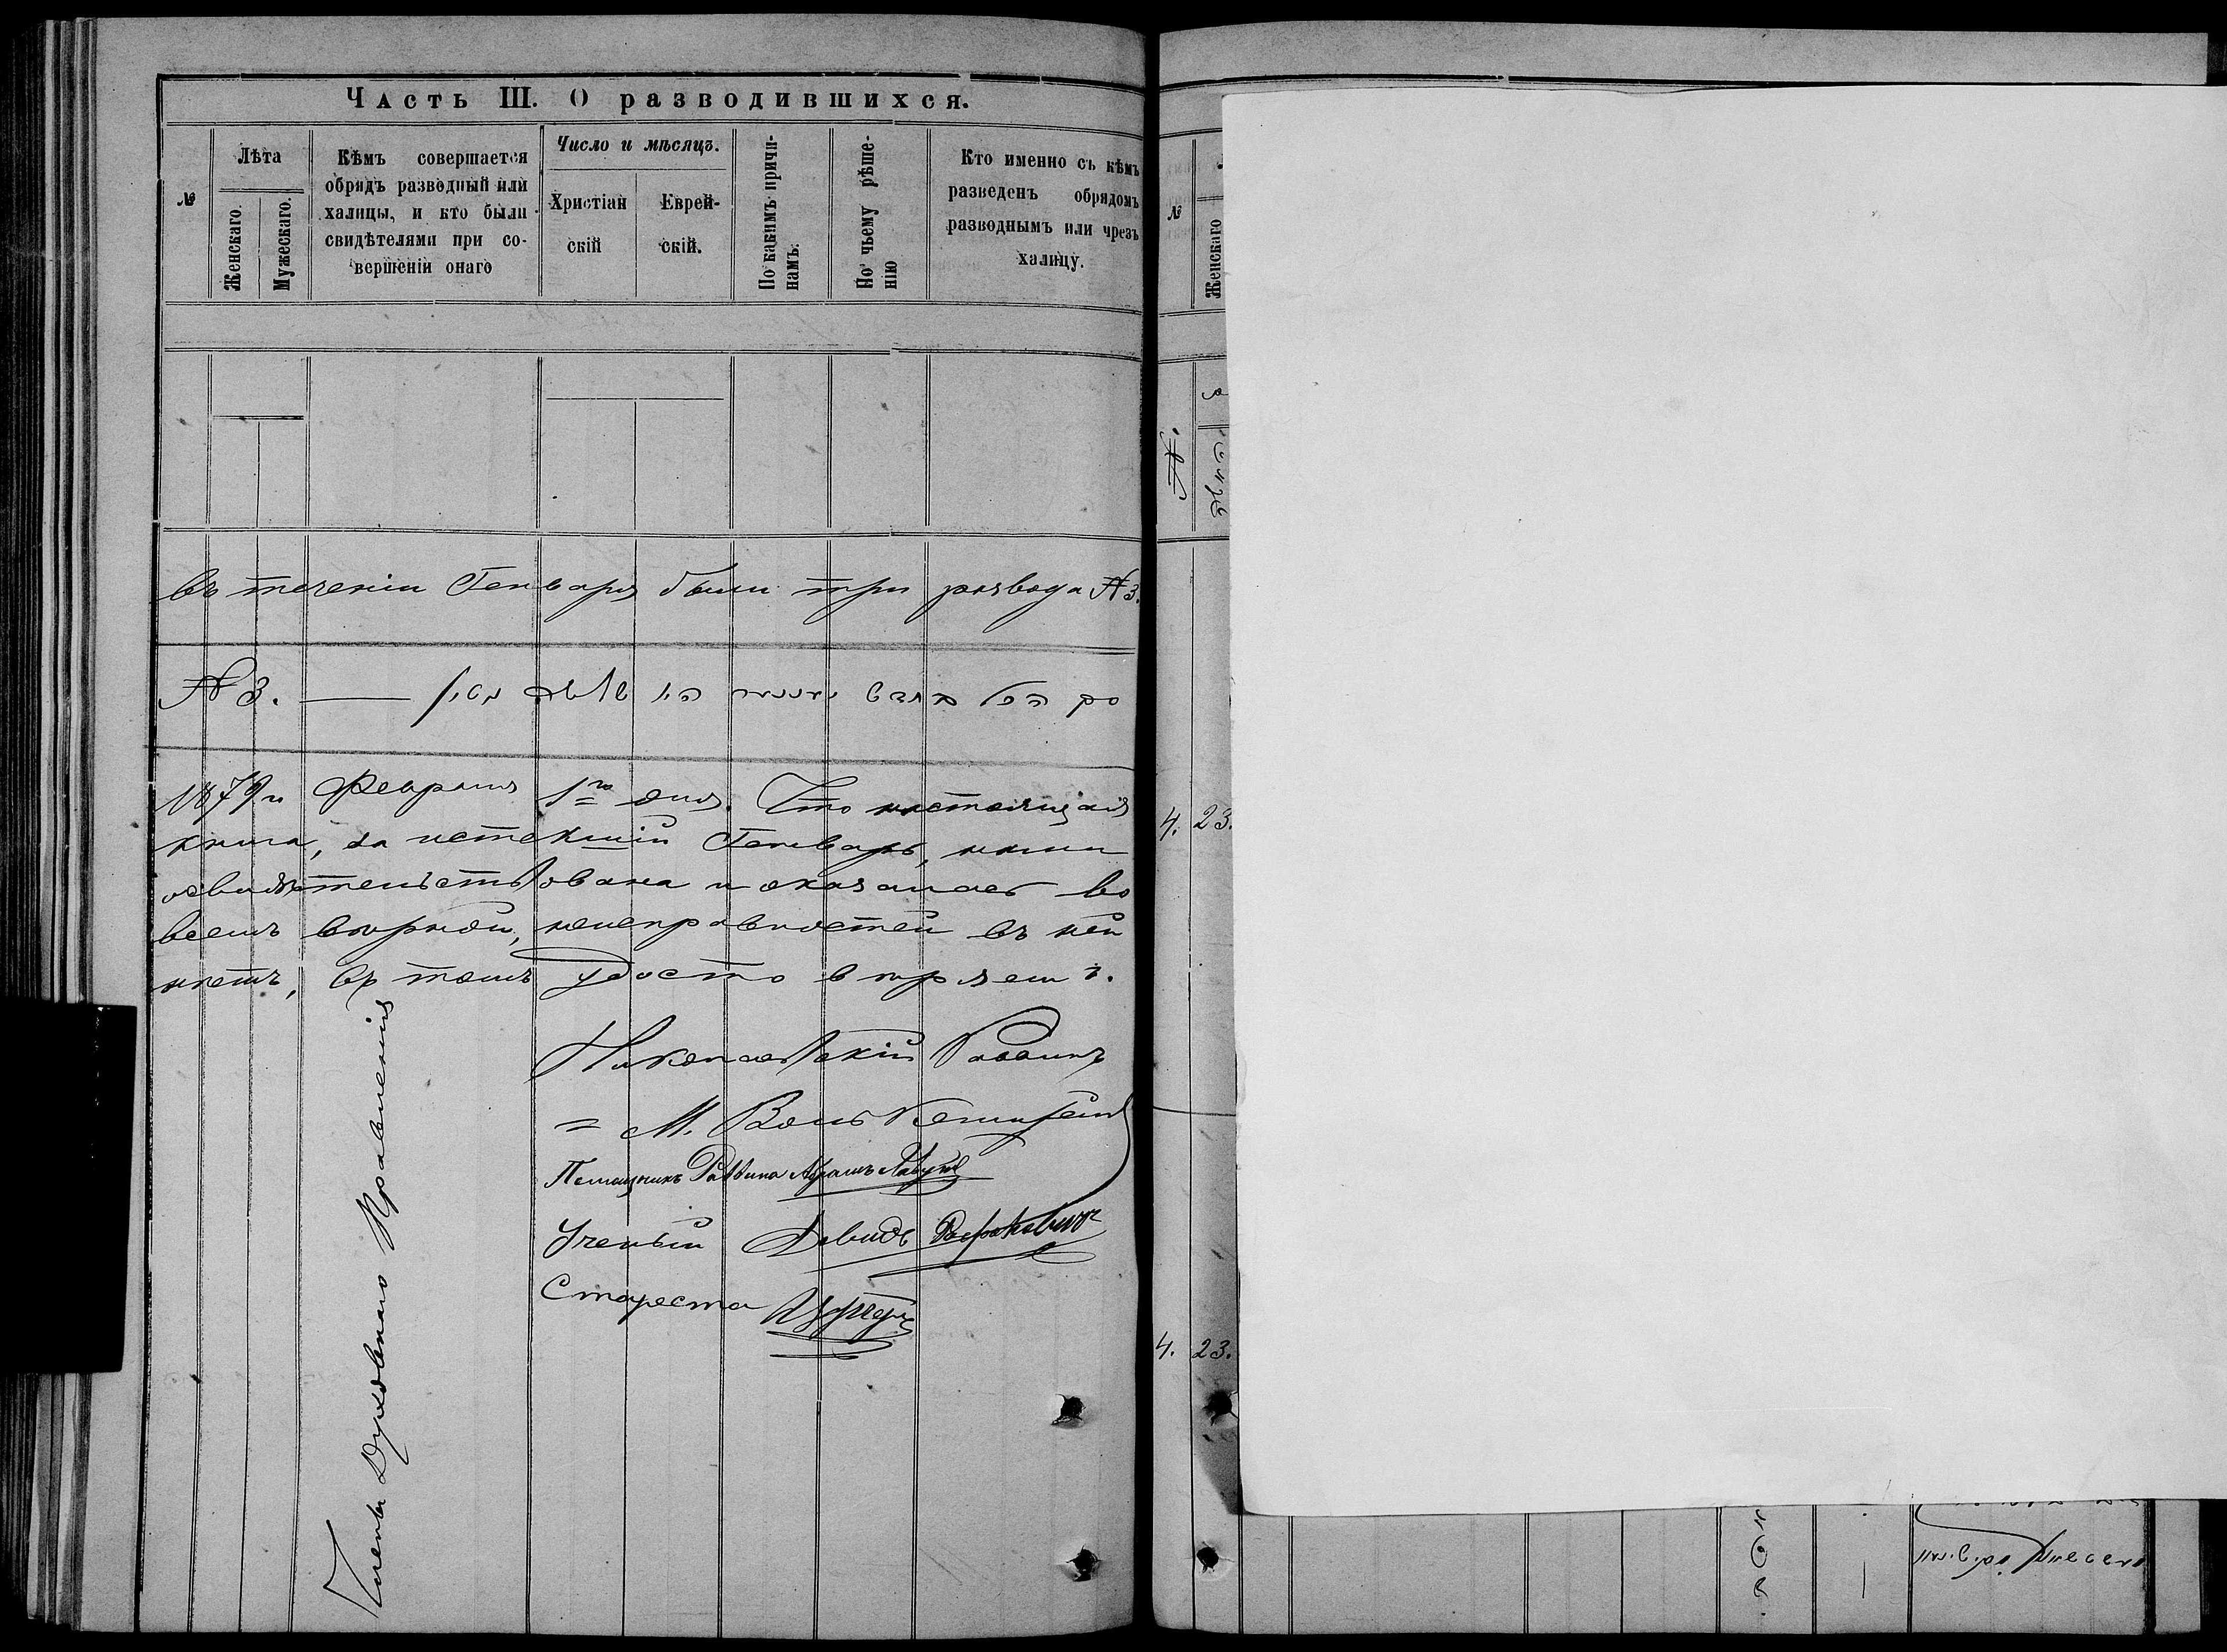 Часть III. О разводившихся.
№
Лѣта
Женскаго.
Мужескаго.
Кѣмъ совершается
обрядъ разводный или
халицы, и кто были
свидѣтелями при со-
вершеніи онаго
Число и мѣсяцъ.
Христіан
скій
Еврей-
скій.
По какимъ причи-
намъ.
По чьему рѣше-
нію
Кто именно съ кѣмъ
разведенъ обрядомъ
разводнымъ или чрезъ
халицу.
Въ теченіи Генваря были три развода № 3.
№ 3.
1879 г. Февраля 1го дня. Что настоящая
книга, за истекшій Генварь, нами
освидѣтельствована и оказалась во
всемъ вѣрной, неисправностей въ ней
нѣтъ, въ томъ удостовѣряемъ.
Николаевскій Раввинъ
М.
Помощникъ Раввина Абрамъ
Ученый Давидъ
Староста
Члены Духовнаго Правленія
№
Женскаго
4. 23.
4. 23.